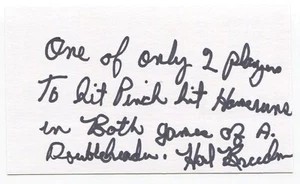 One of only 2 players
To hit Pinch hit Homeruns
in Both games of A.
Doubleheader. Hal Breeden